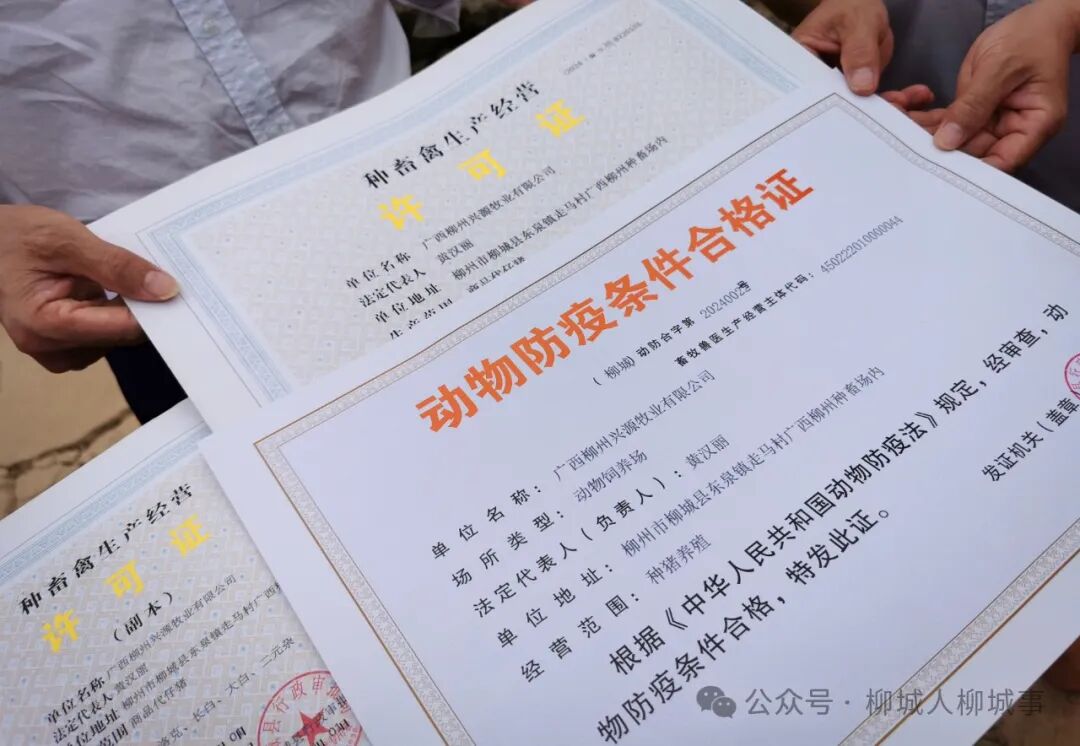 种畜禽生产经营
许可证
单位名称 广西柳州兴源牧业有限公司
法定代表人 黄汉丽
单位地址 柳州市柳城县东泉镇走马村广西柳州种畜场内
动物防疫条件合格证
(柳城)动防合字第 2024002号
畜牧兽医生产经营主体代码：450222010000044
单位名称：广西柳州兴源牧业有限公司
场所类型：动物饲养场
法定代表人（负责人）：黄汉丽
单位地址：柳州市柳城县东泉镇走马村广西柳州种畜场内
经营范围：种猪养殖
根据《中华人民共和国动物防疫法》规定，经审查，动
物防疫条件合格，特发此证。
发证机关（盖章
种畜禽生产经营
许可证
（副本）
单位名称 广西柳州兴源牧业有限公司
法定代表人 黄汉丽
单位地址 柳州市柳城县东泉镇走马村广西柳
范围 商品代仔猪
长白、大白、二元杂
县行政审
公众号·柳城人柳城事